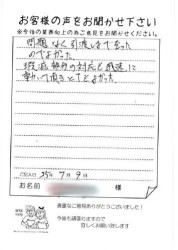 お客様の声をお聞かせ下さい
※今後の業務向上の為ご意見をお聞かせください。
問題なく引渡しまで至った
のでよかった。
瑕疵物件の対応も迅速に
動いて頂きてとてよかった。
ご記入日 25年 7月 9日
お名前 様
貴重なご意見ありがとうございました！
今後も頑張りますので
宜しくお願い致します